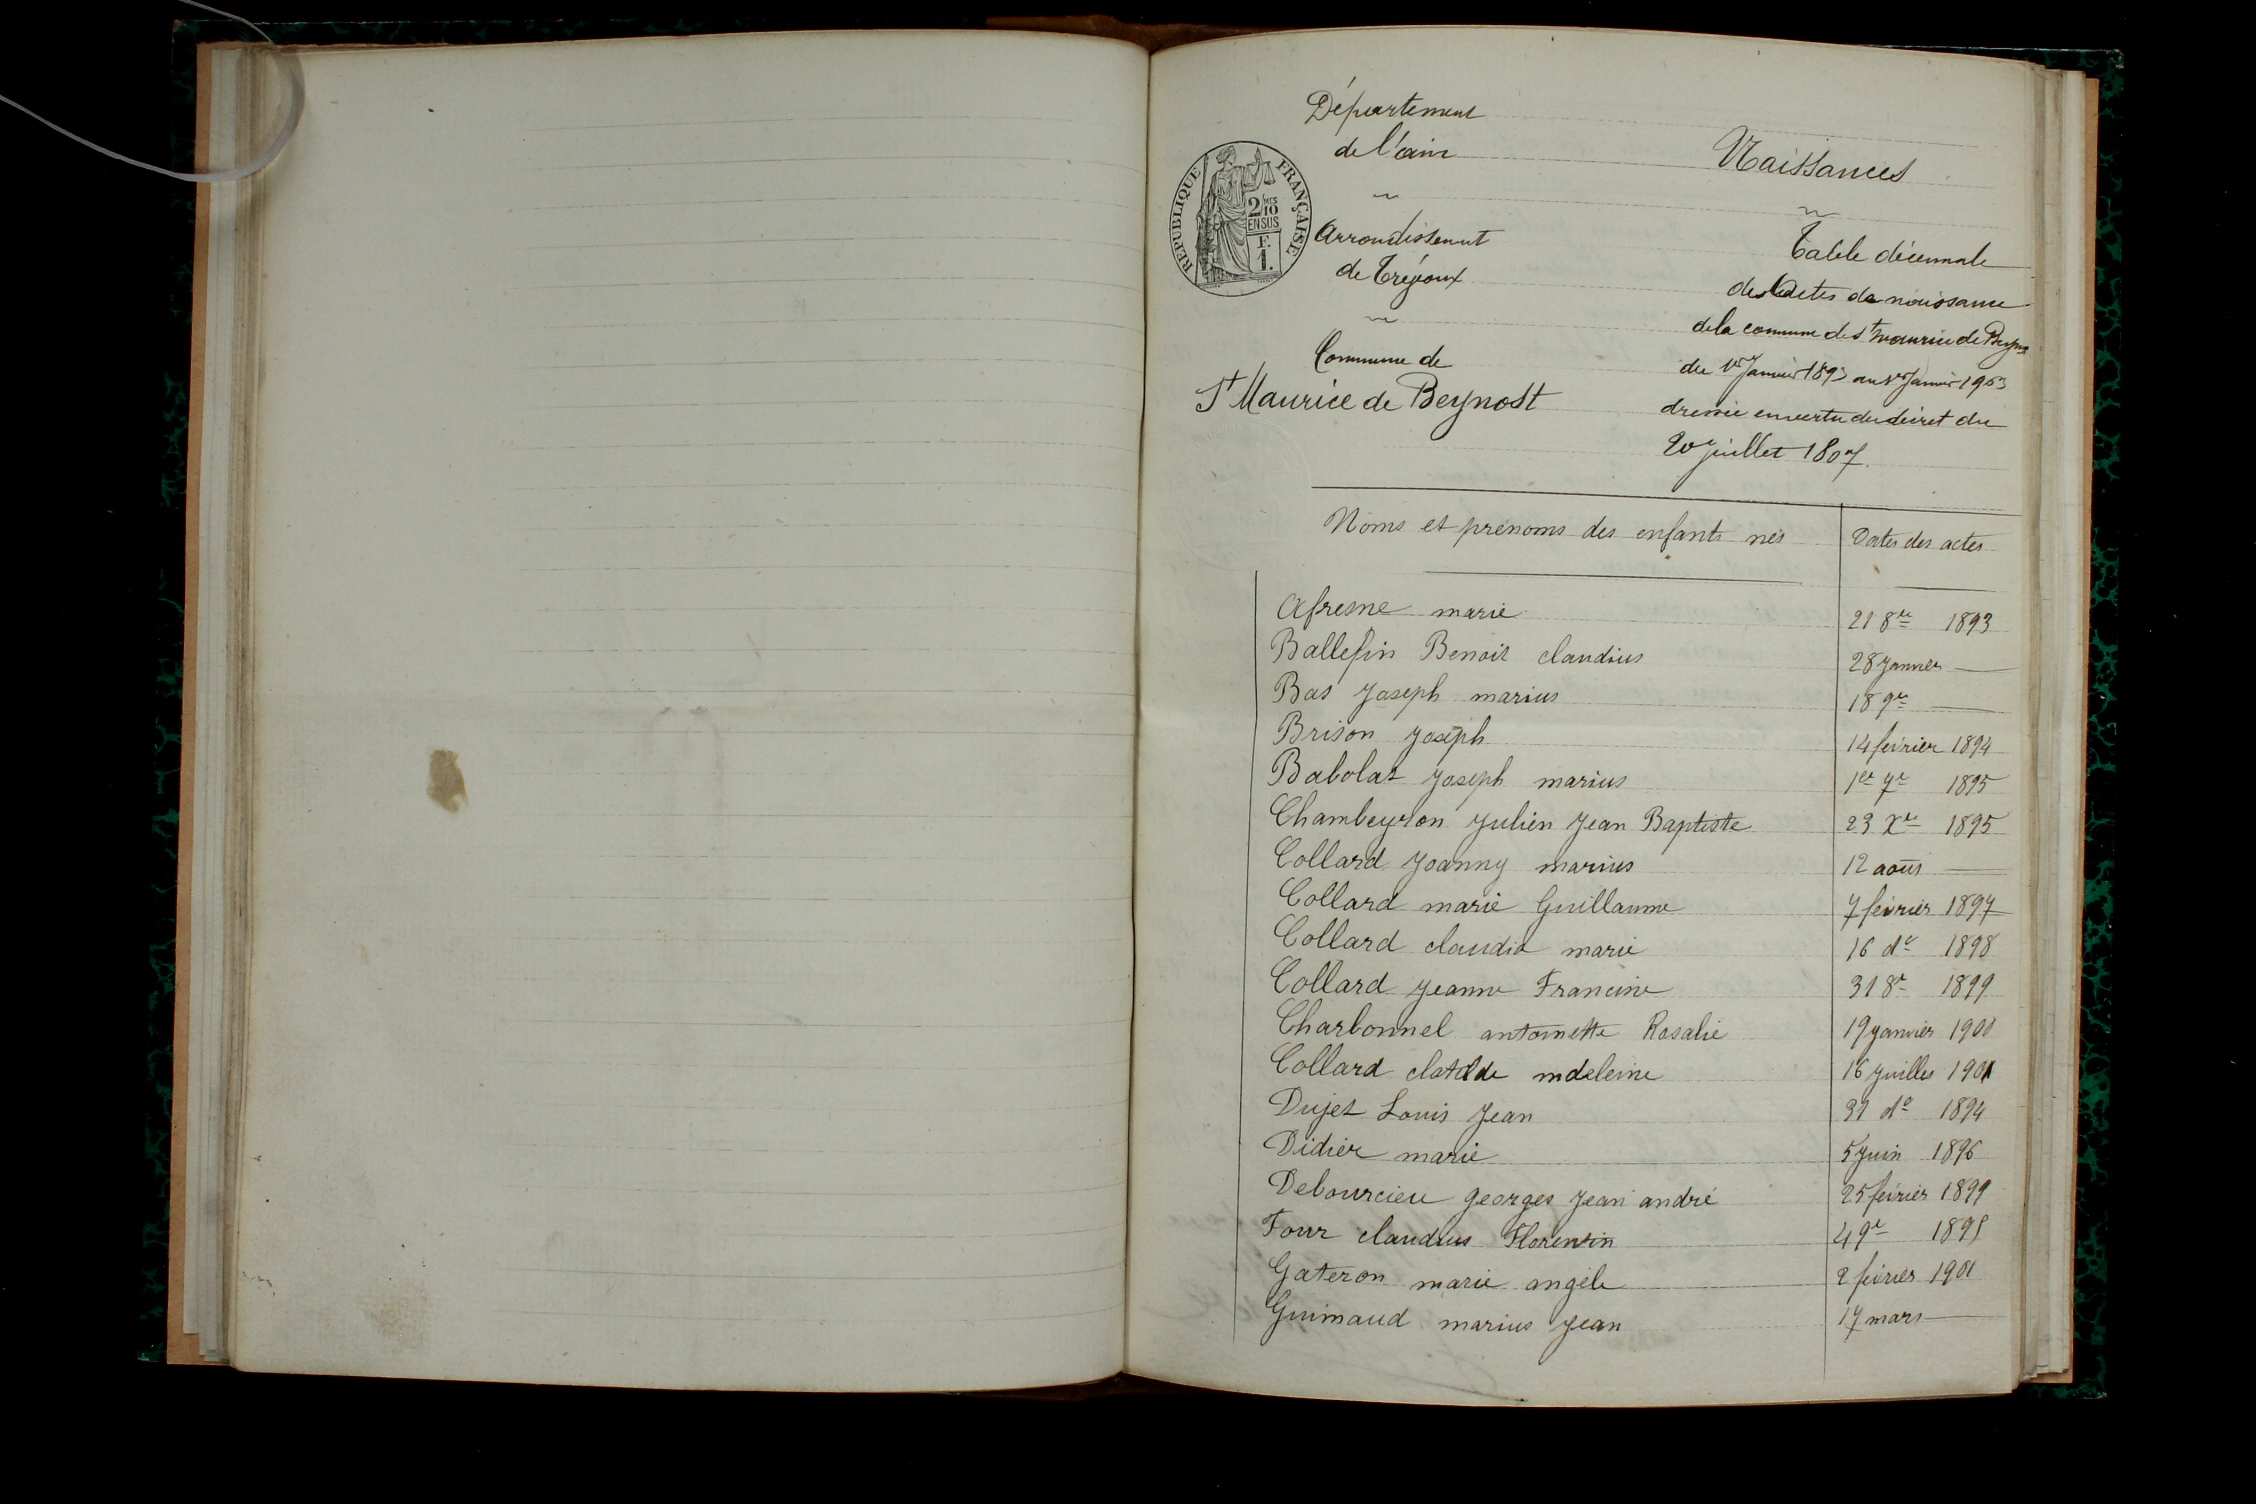 Département
de l'ain
Arrondissement
de Trévoux
Commune de
St Maurice de Beynost
REPUBLIQUE FRANÇAISE
2/10
EN SUS
F.
1.
Naissances
Table décennale
des Actes de naissance
de la commune de St maurice de Beyno
du 1er Janvier 1893 au 1er Janvier 1903
dressée en vertu du décret du
20 juillet 1807.
Noms et prénoms des enfants nés Dates des actes
Afresne marie 21 8re 1893
Ballefin Benoit claudius 28 Janvier —
Bas Joseph marius 18 9re —
Brison Joseph 14 février 1894
Babolat Joseph marius 1er 7e 1895
Chambeyron Julien Jean Baptiste 23 Xre 1895
Collard Joanny marius 12 août —
Collard marie Guillaume 7 février 1897
Collard claudia marie 16 do 1898
Collard Jeanne Francine 31 8e 1899
Charbonnel antoinette Rosalie 19 Janvier 1900
Collard clatilde mdeleine 16 Juillet 1901
Dujet Louis Jean 31 do 1894
Didier marie 5 Juin 1896
Debourcieu georges Jean andré 25 février 1899
Four claudius Florentin 4 9e
Gateron marie angèle 2 février 1901
Guimaud marius Jean 17 mars —